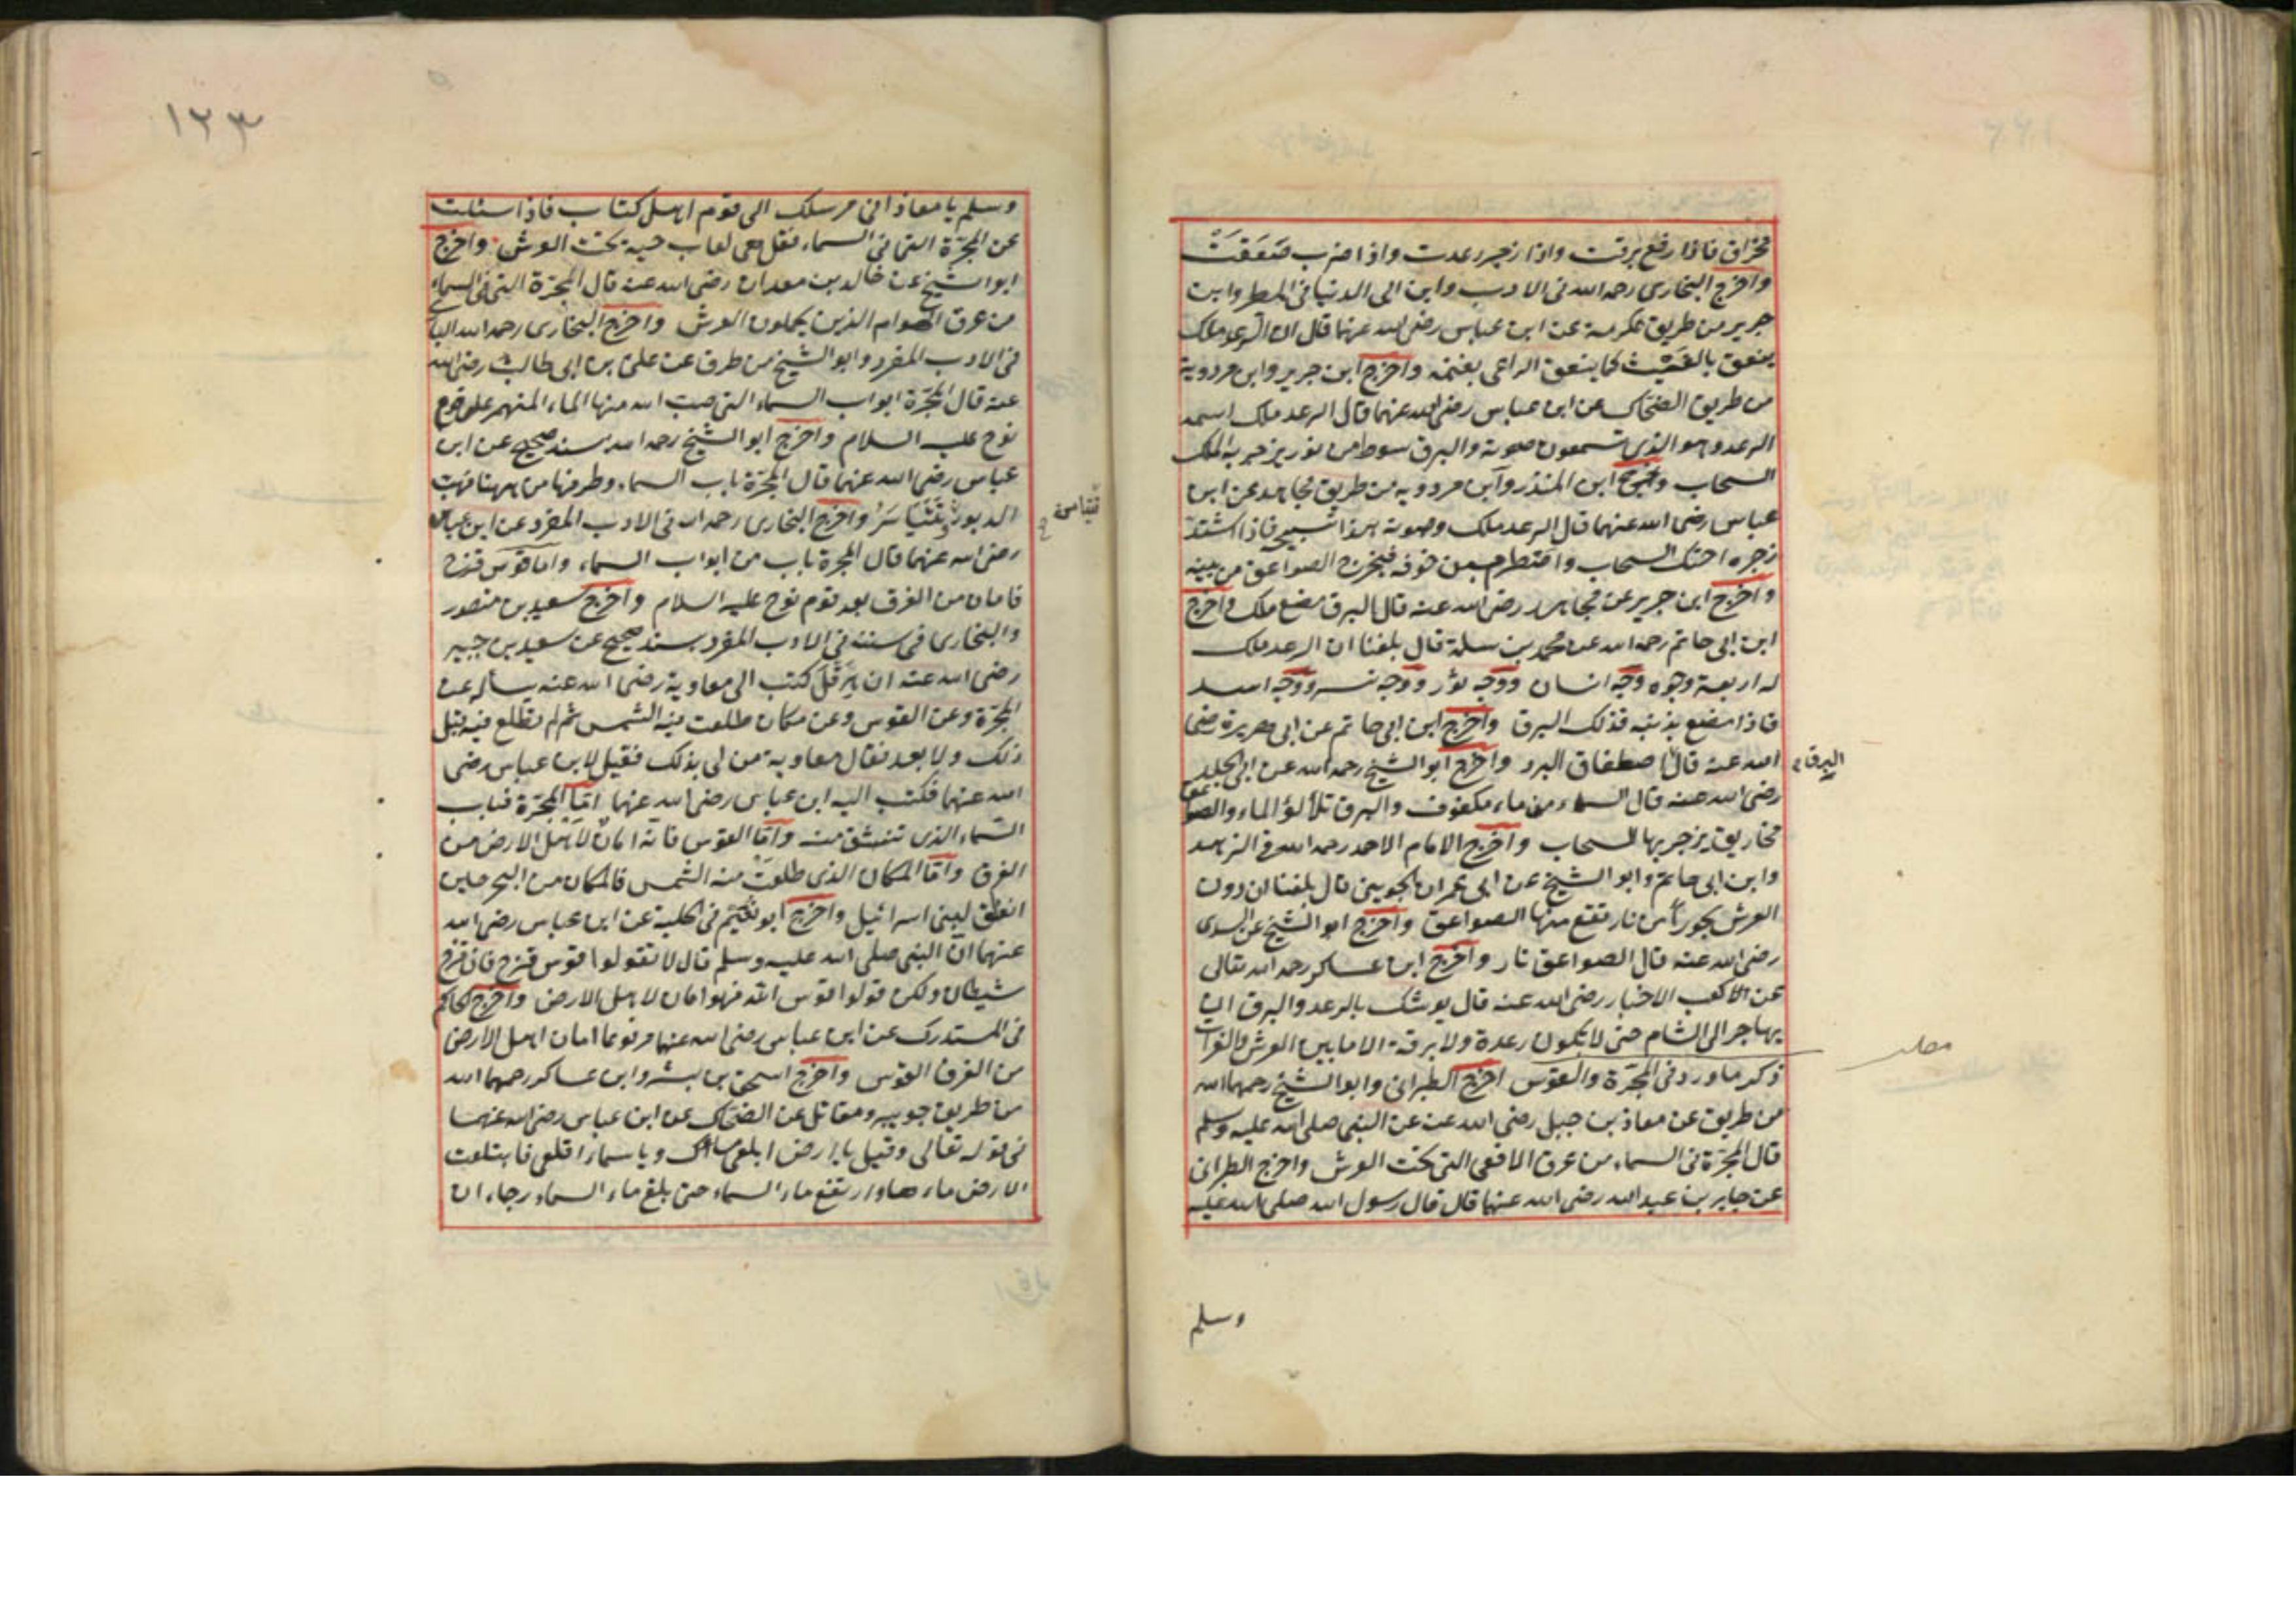 مخراق فاذا رفع برقت واذا زجر رعدت واذا ضرب صعقت
واخرج البخارى رحمه الله فى الادب وابن ابى الدنيا فى المطر وابن
جرير من طريق عكرمة عن ابن عباس رضى الله عنهما قال ان الرعد ملك
ينعق بالغيث كما ينعق الراعى بغنمه واخرج ابن جرير وابن مردوية
من طريق الضحاك عن ابن عباس رضى الله عنهما قال الرعد ملك اسمه
الرعد وهو الذى تسمعون صوته والبرق سوط من نور يزجر به الملك
السحاب واخرج ابن المنذر وابن مردويه من طريق مجاهد عن ابن
عباس رضى الله عنهما قال الرعد ملك وصوته هذا تسبيحه فاذا اشتد
زجره احتك السحاب واضطرم من خوفه فيخرج الصواعق من بينه
واخرج ابن جرير عن مجاهد رضى الله عنه قال البرق مصع ملك واخرج
ابن ابى حاتم رحمه الله عن محمد بن سلمة قال بلغنا ان الرعد ملك
له اربعة وجوه وجه انسان ووجه ثور ووجه نسر ووجه اسد
فاذا مصع بذنبه فذلك البرق واخرج ابن ابى حاتم عن ابى هريرة رضى
الله عنه قال اصطفاق البرد واخرج ابو الشيخ رحمه الله عن ابى الجلد
البرق
رضى الله عنه قال السماء من ماء مكفوف والبرق تلألؤ الماء والصواعق
مخاريق يزجر بها السحاب واخرج الامام الاحمد رحمه الله فى الزهد
وابن ابى حاتم وابو الشيخ عن ابى عمران الجوينى قال بلغنا ان دون
العرش بحورا من نار تقع منها الصواعق واخرج ابو الشيخ عن السدى
رضى الله عنه قال الصواعق نار واخرج ابن عساكر رحمه الله تعالى
عن الاكعب الاحبار رضى الله عنه قال يوشك بالرعد والبرق ان
يهاجر الى الشام حتى لا يكون رعدة ولا برقة الا ما بين العرش والفرات
ذكر ما ورد فى المجرة والقوس اخرج الطبرانى وابو الشيخ رحمهما الله
مطلب
من طريق عن معاذ بن جبل رضى الله عنه عن النبى صلى الله عليه وسلم
قال المجرة فى السماء من عرق الافعى التى تحت العرش واخرج الطبرانى
عن جابر بن عبد الله رضى الله عنهما قال قال رسول الله صلى الله عليه
وسلم
١٢٣
وسلم يا معاذ انى مرسلك الى قوم اهل كتاب فاذا سئلت
عن المجرة التى فى السماء فقل هى لعاب حية تحت العرش واخرج
ابو الشيخ عن خالد بن معدان رضى الله عنه قال المجرة التى فى السماء
من عرق الهوام الذين يحملون العرش واخرج البخارى رحمه الله
فى الادب المفرد وابو الشيخ من طرق عن على بن ابى طالب رضى الله
عنه قال المجرة ابواب السماء التى صب الله منها الماء المنهمر على قوم
نوح عليه السلام واخرج ابو الشيخ رحمه الله بسند صحيح عن ابن
عباس رضى الله عنهما قال المجرة باب السماء وطرفها من ههنا
الدبور واخرج البخارى رحمه الله فى الادب المفرد عن ابن عباس
رضى الله عنهما قال المجرة باب من ابواب السماء واما قوس قزح
فامان من الغرق بعد قوم نوح عليه السلام واخرج سعيد بن منصور
والبخارى فى سننه فى الادب المفرد بسند صحيح عن سعيد بن جبير
رضى الله عنه ان هرقل كتب الى معاوية رضى الله عنه يسأله عن
المجرة وعن القوس وعن مكان طلعت فيه الشمس ثم لم تطلع فيه قبل
ذلك ولا بعد فقال معاوية من لى بذلك فقيل لابن عباس رضى
الله عنهما فكتب اليه ابن عباس رضى الله عنهما اما المجرة فباب
السماء الذى تنشق منه واما القوس فانه امان لاهل الارض من
الغرق واما المكان الذى طلعت منه الشمس فالمكان من البحر حين
انفلق لبنى اسرائيل واخرج ابو نعيم فى الحلية عن ابن عباس رضى الله
عنهما ان النبى صلى الله عليه وسلم قال لا تقولوا قوس قزح فان قزح
شيطان ولكن قولوا قوس الله فهو امان لاهل الارض واخرج الحاكم
فى المستدرك عن ابن عباس رضى الله عنهما مرفوعا امان اهل الارض
من الغرق القوس واخرج اسحق بن بشر وابن عساكر رحمهما الله
من طريق جويبر ومقاتل عن الضحاك عن ابن عباس رضى الله عنهما
فى قوله تعالى وقيل يا ارض ابلعى ماءك ويا سماء اقلعى فابتلعت
الارض ماءها وارتفع ماء السماء حتى بلغ ماء السماء رجاء ان